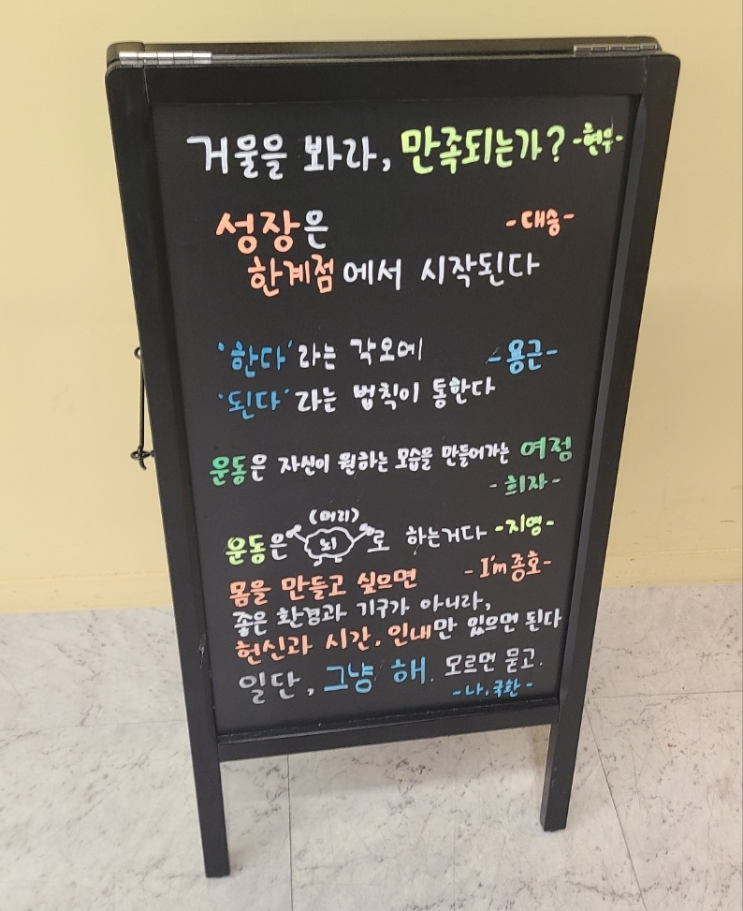 거울을 봐라, 만족되는가? -현우-
성장은 -대승-
한계점에서 시작된다
'한다'라는 각오에 -용근-
'된다'라는 법칙이 통한다
운동은 자신이 원하는 모습을 만들어가는 여정
-희자-
(머리)
운동은 뇌로 하는거다 -지영-
몸을 만들고 싶으면 -I'm종호-
좋은 환경과 기구가 아니라,
헌신과 시간, 인내만 있으면 된다
일단, 그냥 해. 모르면 묻고.
-나,국환-